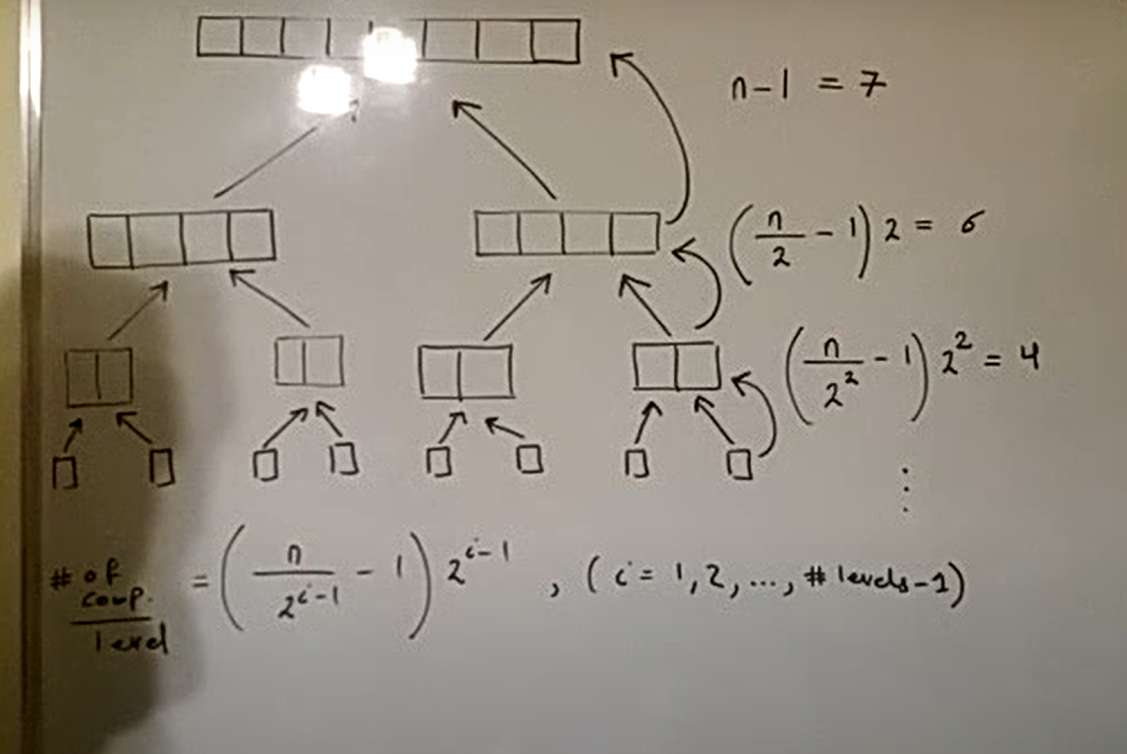 n-1 = 7
(n/2 - 1) 2 = 6
(n/2² - 1) 2² = 4
⋮
# of comp. / level = (n/2^(i-1) - 1) 2^(i-1) , (i = 1, 2, ..., # levels-1)